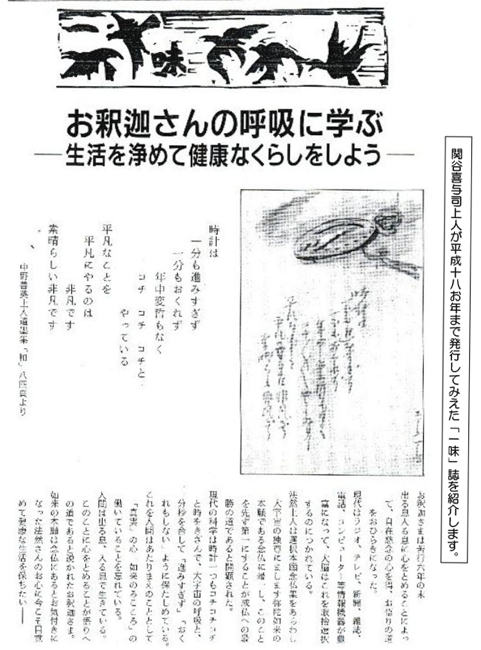 一味
お釈迦さんの呼吸に学ぶ
―生活を浄めて健康なくらしをしよう―
関谷喜与司上人が平成十八お年まで発行してみえた「一味」誌を紹介します。
時計は
一分も進みすぎず
一分もおくれず
年中変哲もなく
コチ コチ コチと
やっている
平凡なことを
平凡にやるのは
非凡です
素晴らしい非凡です
中野善英上人遺墨集「和」八四頁より
お釈迦さまは苦行六年の末
出る息入る息に心をとめることによっ
て、自在慈念の心を得、お悟りの道
をおひらきになった。
現代はラジオ、テレビ、新聞、雑誌、
電話、コンピューター等情報機器が豊
富になって、大脳はこれを取捨選択
するのにつかれている。
法然上人は選択本願念仏集をあらわし
大宇宙の独尊にまします弥陀如来の
本願である念仏に帰し、このこと
を先ず第一にすることが成仏への最
勝の道であると開顕された。
現代の科学は時計一つもコチコチコチ
と時をきざんで、大宇宙の呼吸と、
分秒を合して「進みすぎず」「おく
れもしない」ように保たしめている。
これを人間はあたりまえのこととして
「真実」の心 如来のみこころの
働いていることを忘れている。
人間は出る息、入る息で生きている。
このことに心をとめることが悟りへ
の道であると説かれたお釈迦さま。
如来の本願は念仏にあるとお気付きに
なった法然さんのお心に今こそ目覚
めて健康な生活を保ちたい―